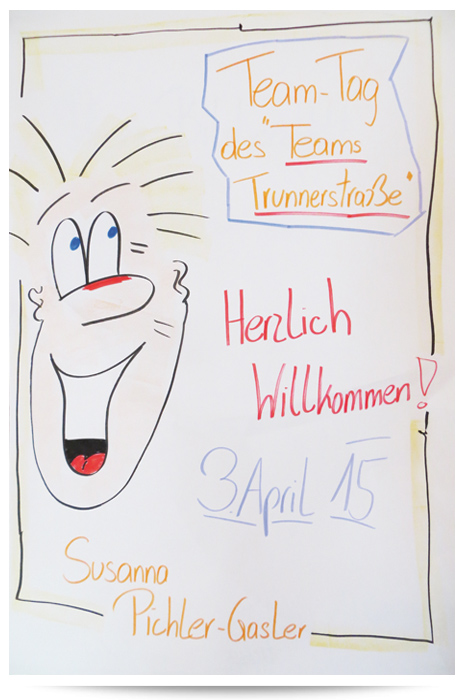 Team-Tag
des "Teams
Trunnerstraße"
Herzlich
Willkommen!
3. April 15
Susanna
Pichler-Gasler